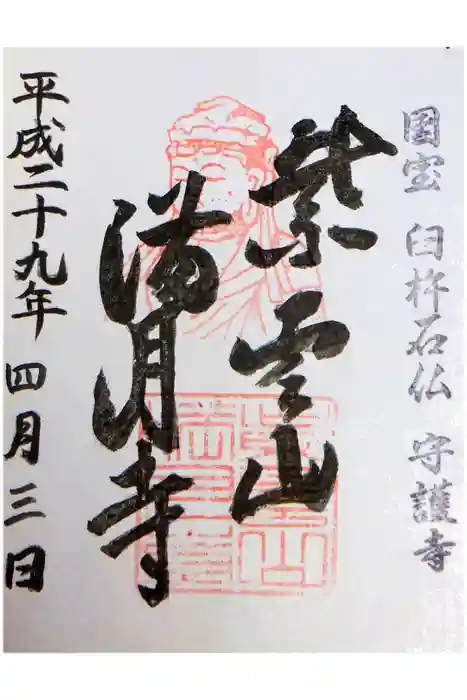 国宝 臼杵石仏 守護寺
紫雲山
満月寺
平成二十九年 四月 三日